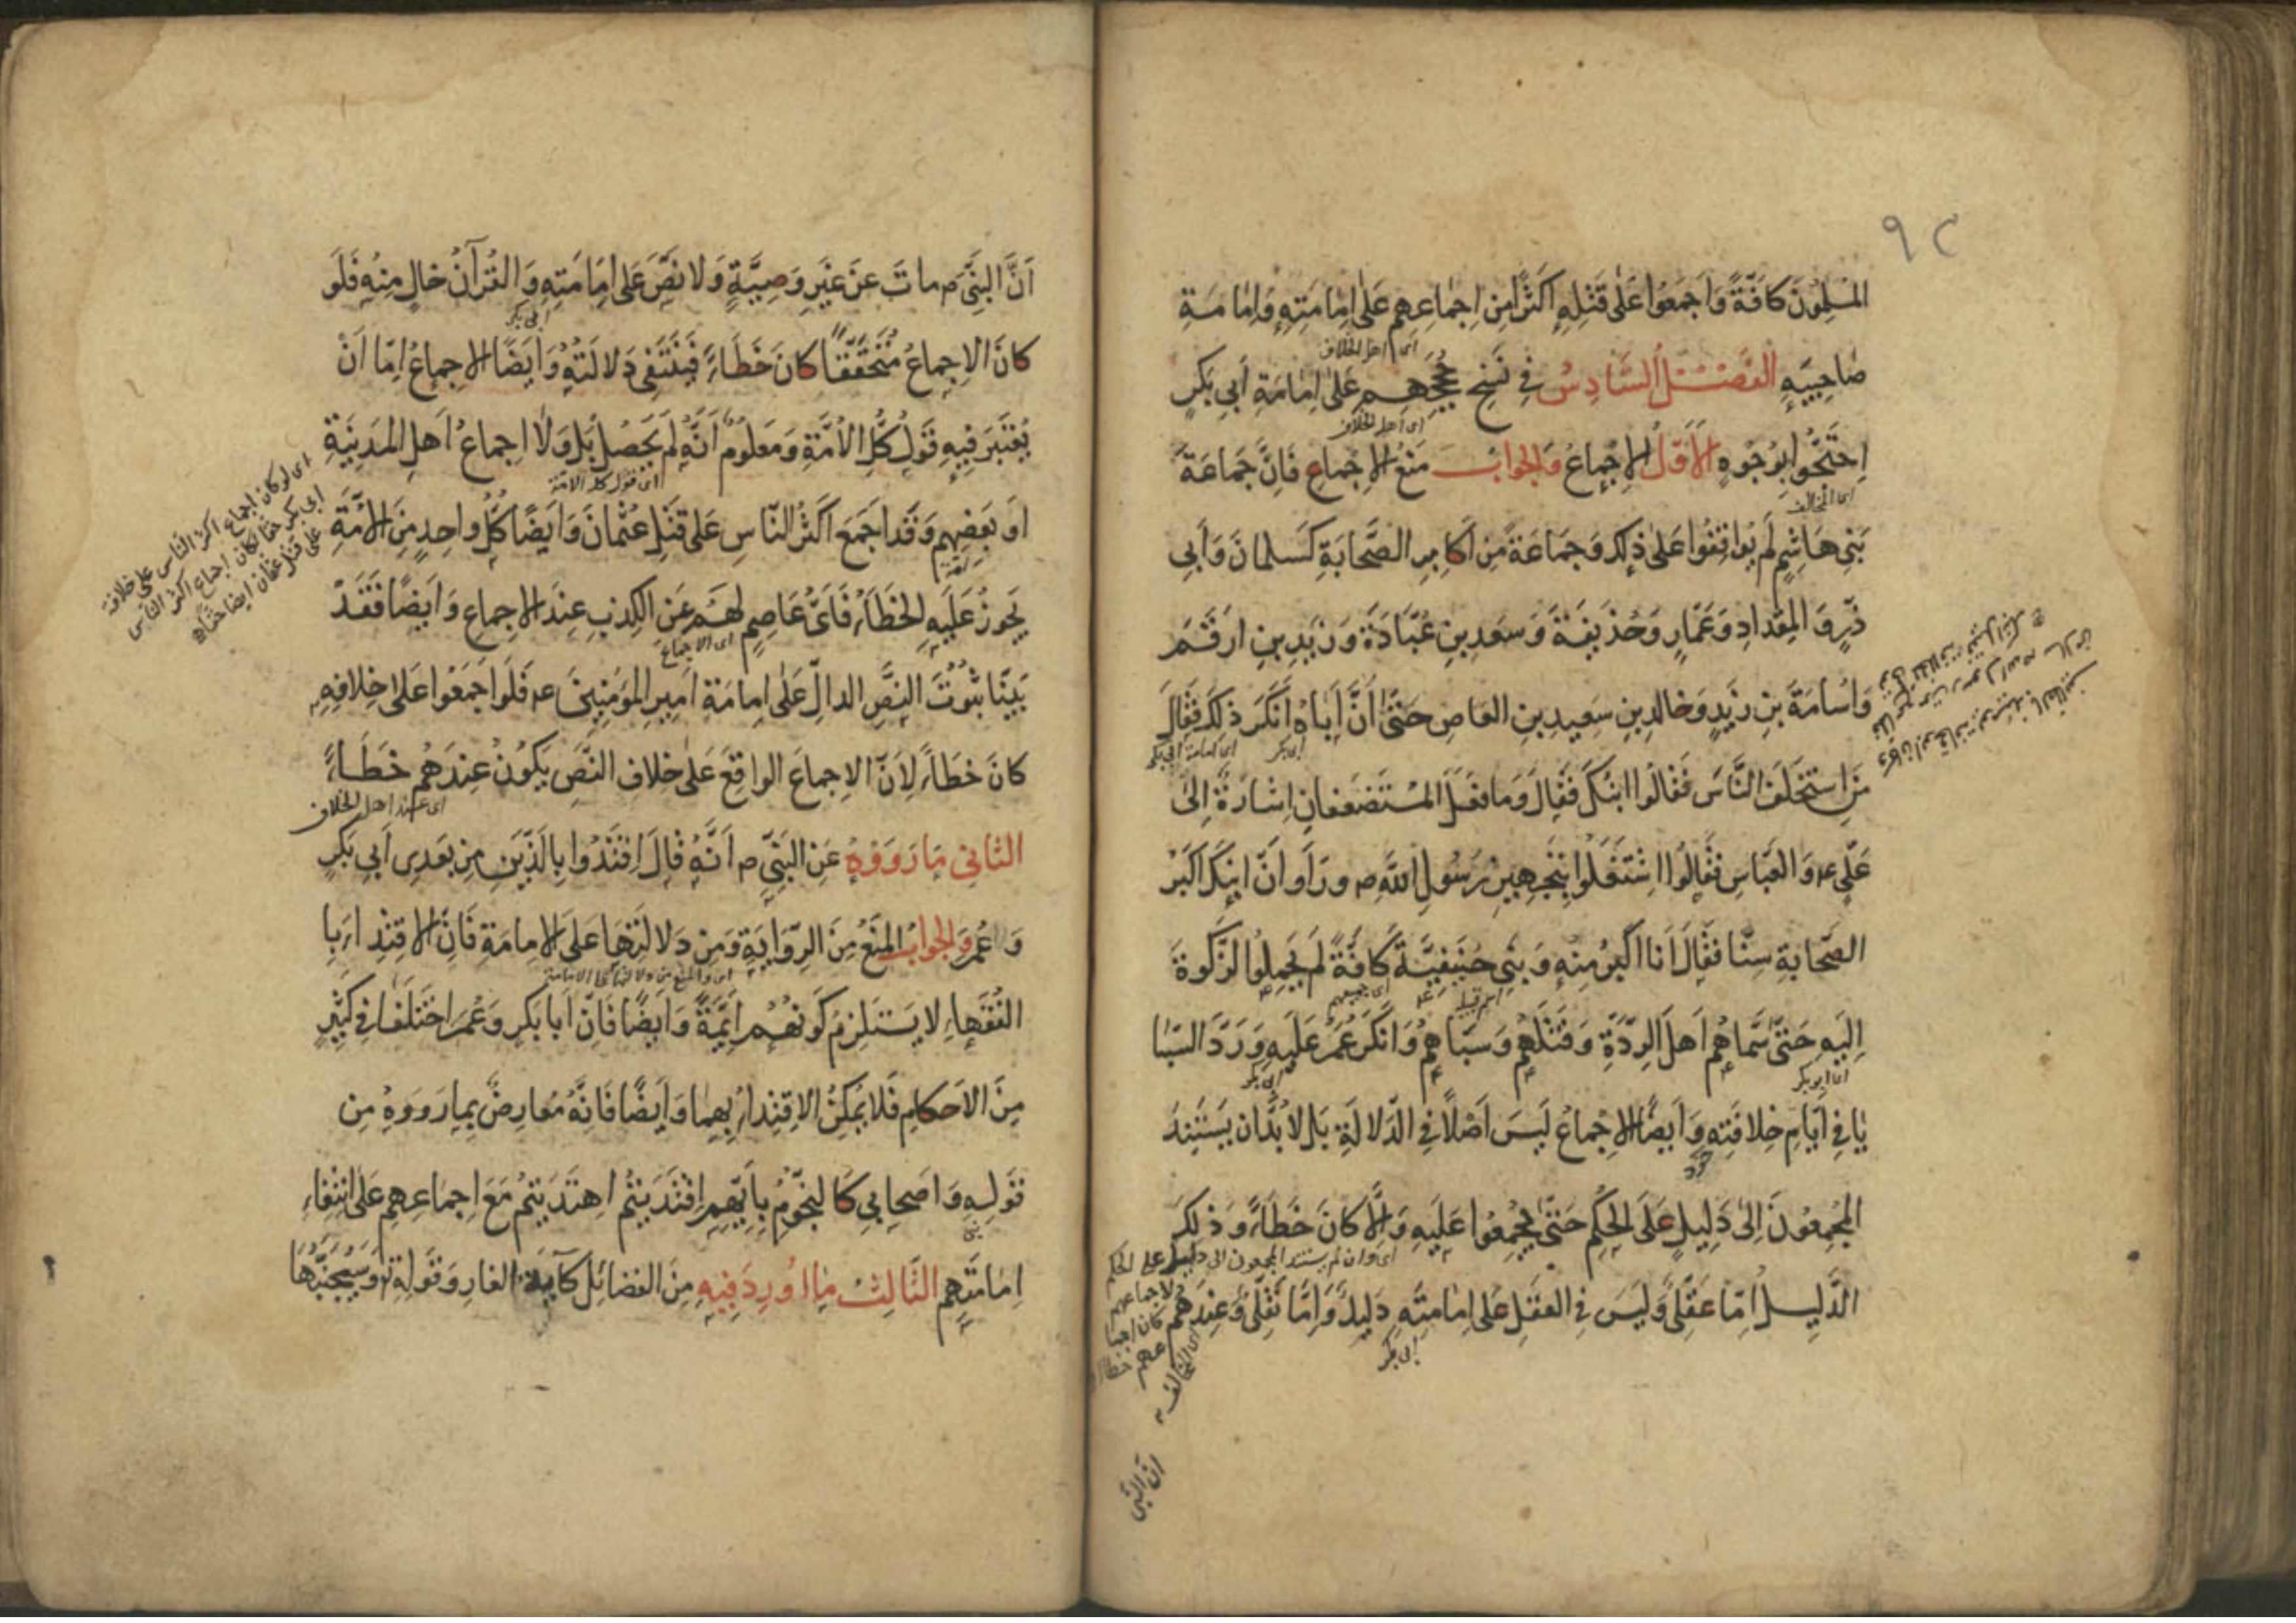 ٩٢
المسلمون كافَّةً وَاَجمَعُوا عَلٰى قَتْلِهِ اَكثَرَ مِن اِجماعِهِم عَلٰى اِمامَتِهِ وَاِمامَةِ
صاحِبَيهِ الفَصْلُ السَّادِسُ فِي نَسخِ حُجَجِهِم عَلٰى اِمامَةِ اَبي بَكرٍ
اى اهل الخلاف
اِحتَجُّوا بِوُجُوهٍ الاَوَّلُ الاِجْماعُ وَالجَوابُ مَنعُ الاِجْماعِ فَاِنَّ جَماعَةً
اى اهل الخلاف
بَنِي هاشِمٍ لَم يُوافِقُوا عَلٰى ذٰلِكَ وَجَماعَةً مِن اَكابِرِ الصَّحابَةِ كَسَلمانَ وَاَبي
اى المخالف
ذَرٍّ وَالمِقدادِ وَعَمّارٍ وَحُذَيفَةَ وَسَعدِ بنِ عُبّادَةَ وَزَيدِ بنِ اَرقَمَ
وَاُسامَةَ بنِ زَيدٍ وَخالِدِ بنِ سَعيدِ بنِ العاصِ حَتّٰى اَنَّ اَباهُ اَنكَرَ ذٰلِكَ فَقالَ
مَنِ استَخلَفَ النَّاسُ فَقالُوا ابنُكَ فَقالَ وَما فَعَلَ المُستَضعَفانِ اِشارَةً اِلٰى
ابى بكر
اى امامة ابى بكر
عَلِيٍّ ع م وَالعَبّاسِ فَقالُوا اشتَغَلُوا بِتَجهيزِ رَسُولِ اللّٰهِ ص وَرَاَوا اَنَّ ابنَكَ اَكبَرُ
الصَّحابَةِ سِنًّا فَقالَ اَنا اَكبَرُ مِنهُ وَبَنِي حَنيفِيَّةَ كافَّةً لَم يَحمِلُوا الزَّكوةَ
اِلَيهِ حَتّٰى سَمّاهُم اَهلَ الرِّدَّةِ وَقَتَلَهُم وَسَباهُم وَاَنكَرَ عُمَرُ عَلَيهِ وَرَدَّ السَّبا
اسم قبيلة
اى جميعهم
يا فِي اَيّامِ خِلافَتِهِ وَاَيضًا الاِجْماعُ لَيسَ اَصْلًا فِي الدَّلالَةِ بَل لابُدَّ اَن يَستَنِدَ
اى ابو بكر
ابى بكر
المُجمِعُونَ اِلٰى دَليلٍ عَلَى الحُكمِ حَتّٰى يُجمِعُوا عَلَيهِ وَاِلَّا كانَ خَطَاءً وَذٰلِكَ
عمر
الدَّليلُ اِمّا عَقلِيٌّ وَلَيسَ فِي العَقلِ عَلٰى اِمامَتِهِ دَليلٌ وَاِمّا نَقلِيٌّ وَعِندَهُم
اى وان لم يستند المجمعون الى دليل على الحكم
لاجماعهم
كان اجما
عهم خطاء
اى المخالف
ابى بكر
اَنَّ النَّبِيَّ
اَنَّ النَّبِيَّ ص ماتَ عَن غَيرِ وَصِيَّةٍ وَلا نَصَّ عَلٰى اِمامَتِهِ وَالقُرآنُ خالٍ مِنهُ فَلَو
كانَ الاِجماعُ مُتَحَقِّقًا كانَ خَطَاءً فَتَنتَفِي دَلالَتُهُ وَاَيضًا الاِجماعُ اِمّا اَنْ
ابى بكر
يُعتَبَرَ فِيهِ قَولُ كُلِّ الاُمَّةِ وَمَعلُومٌ اَنَّهُ لَم يَحصُل بَل وَلا اِجماعُ اَهلِ المَدينَةِ
اَو بَعضِهِم وَقَد اَجمَعَ اَكثَرُ النّاسِ عَلٰى قَتلِ عُثمانَ وَاَيضًا كُلُّ واحِدٍ مِنَ الاُمَّةِ
اى قول كل الامة
اى لو كان اجماع اكثر الناس على خلافة
ابى بكر حقا لكان اجماع اكثر الناس
على قتل عثمان ايضا حقا
يَجُوزُ عَلَيهِ الخَطَاءُ فَاَيُّ عاصِمٍ لَهُم عَنِ الكِذبِ عِندَ الاِجماعِ وَاَيضًا فَقَد
بَيَّنّا ثُبُوتَ النَّصِّ الدالِّ عَلٰى اِمامَةِ اَميرِ المُؤمِنينَ ع م فَلَو اَجمَعُوا عَلٰى خِلافِهِ
اى الاجماع
كانَ خَطَاءً لِاَنَّ الاِجماعَ الواقِعَ عَلٰى خِلافِ النَّصِّ يَكُونُ عِندَهُم خَطَاءً
اى عند اهل الخلاف
الثّانِي ما رَوَوْهُ عَنِ النَّبِيِّ ص اَنَّهُ قالَ اِقتَدُوا بِالَّذَينِ مِن بَعدِي اَبي بَكرٍ
وَعُمَرَ وَالجَوابُ المَنعُ مِنَ الرِّوايَةِ وَمِن دَلالَتِها عَلَى الاِمامَةِ فَاِنَّ الاِقتِداءَ بِا
لفُقَهاءِ لا يَستَلزِمُ كَونَهُم اَئِمَّةً وَاَيضًا فَاِنَّ اَبا بَكرٍ وَعُمَرَ اختَلَفا فِي كَثيرٍ
اى والمنع من دلالتها على الامامة
مِنَ الاَحكامِ فَلا يُمكِنُ الاِقتِداءُ بِهِما وَاَيضًا فَاِنَّهُ مُعارِضٌ بِما رَوَوهُ مِن
قَولِهِ وَاَصحابِي كَالنُّجُومِ بِاَيِّهِم اِقتَدَيتُم اِهتَدَيتُم مَعَ اِجماعِهِم عَلٰى انتِفاءِ
اِمامَتِهِم الثَّالِثُ ما اُورِدَ فِيهِ مِنَ الفَضائِلِ كَآيَةِ الغارِ وَقَولِهِ وَسَيُجَنَّبُهَا